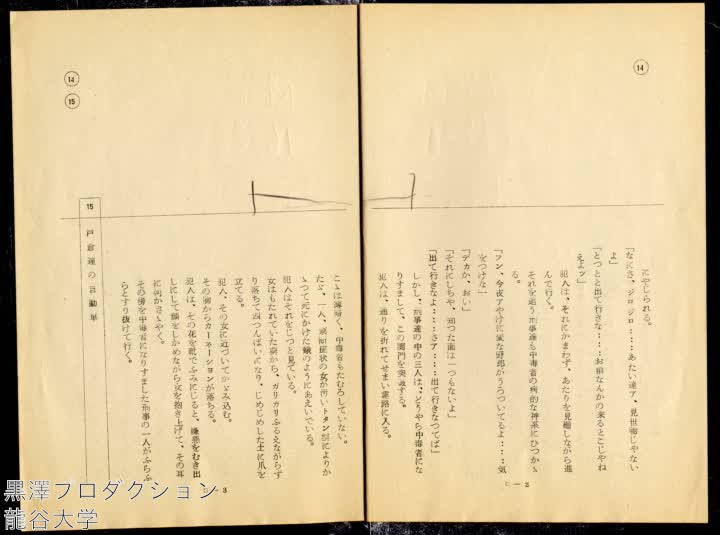 ⑭
にやじられる。
「なにさ、ジロジロ‥‥あたい達ア、見世物じやない
よ」
「とつとと出て行きな‥‥お前なんかの来るとこじやね
えよツ」
犯人は、それにかまわず、あたりを見廻しながら進
んで行く。
それを追う刑事達も中毒者の病的な神系にひつかゝ
る。
「フン、今夜アやけに変な野郎がうろついてるよ‥‥気
をつけな」
「デカか、おい」
「それにしちや、知つた面は一つもないよ」
「出て行きなよ‥‥さア‥‥出て行きなつてば」
しかし、刑事達の中の三人は、どうやら中毒者にな
りすまして、この関門を突破する。
犯人は、通りを折れてせまい露路に入る。
D－2
⑭
⑮
こゝは薄暗く、中毒者もたむろしていない。
たゞ、一人、禁断症状の女が汚いトタン塀によりか
ゝつて死にかけた蛾のようにあえいでいる。
犯人はそれをじつと見ている。
女はもたれていた塀から、ガリガリふるえながらず
り落ちて四つんばいになり、じめじめした土に爪を
立てる。
犯人、その女に近づいてかゞみ込む。
その胸からカーネーションが落ちる。
犯人は、その花を靴でふみにじると、嫌悪をむき出
しにして顔をしかめながら女を抱き上げて、その耳
に何かさゝやく。
その傍を中毒者になりすました刑事の一人がふらふ
らとすり抜けて行く。
15 戸倉達の自動車
D－3
黒澤プロダクション
龍谷大学